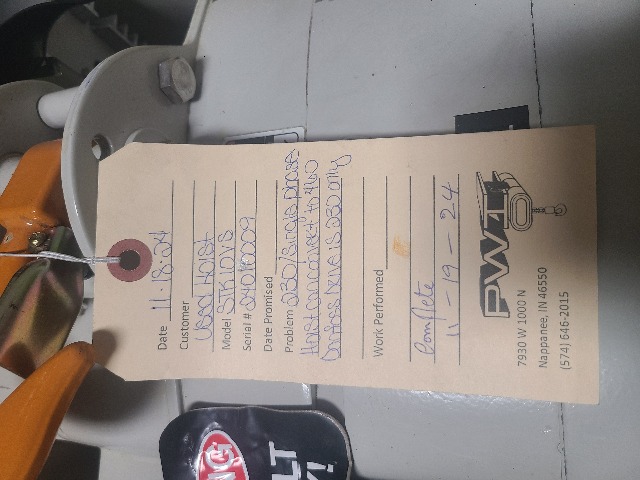 Date 11-18-24
Customer
Used Hoist
Model STK10VS
Serial #
Date Promised
Problem 230/Single phase
Hoist can convert to 460
Danfoss Drive is 230 only
Work Performed
Complete
11-19-24
PWI
7930 W 1000 N
Nappanee, IN 46550
(574) 646-2015
NG
LT